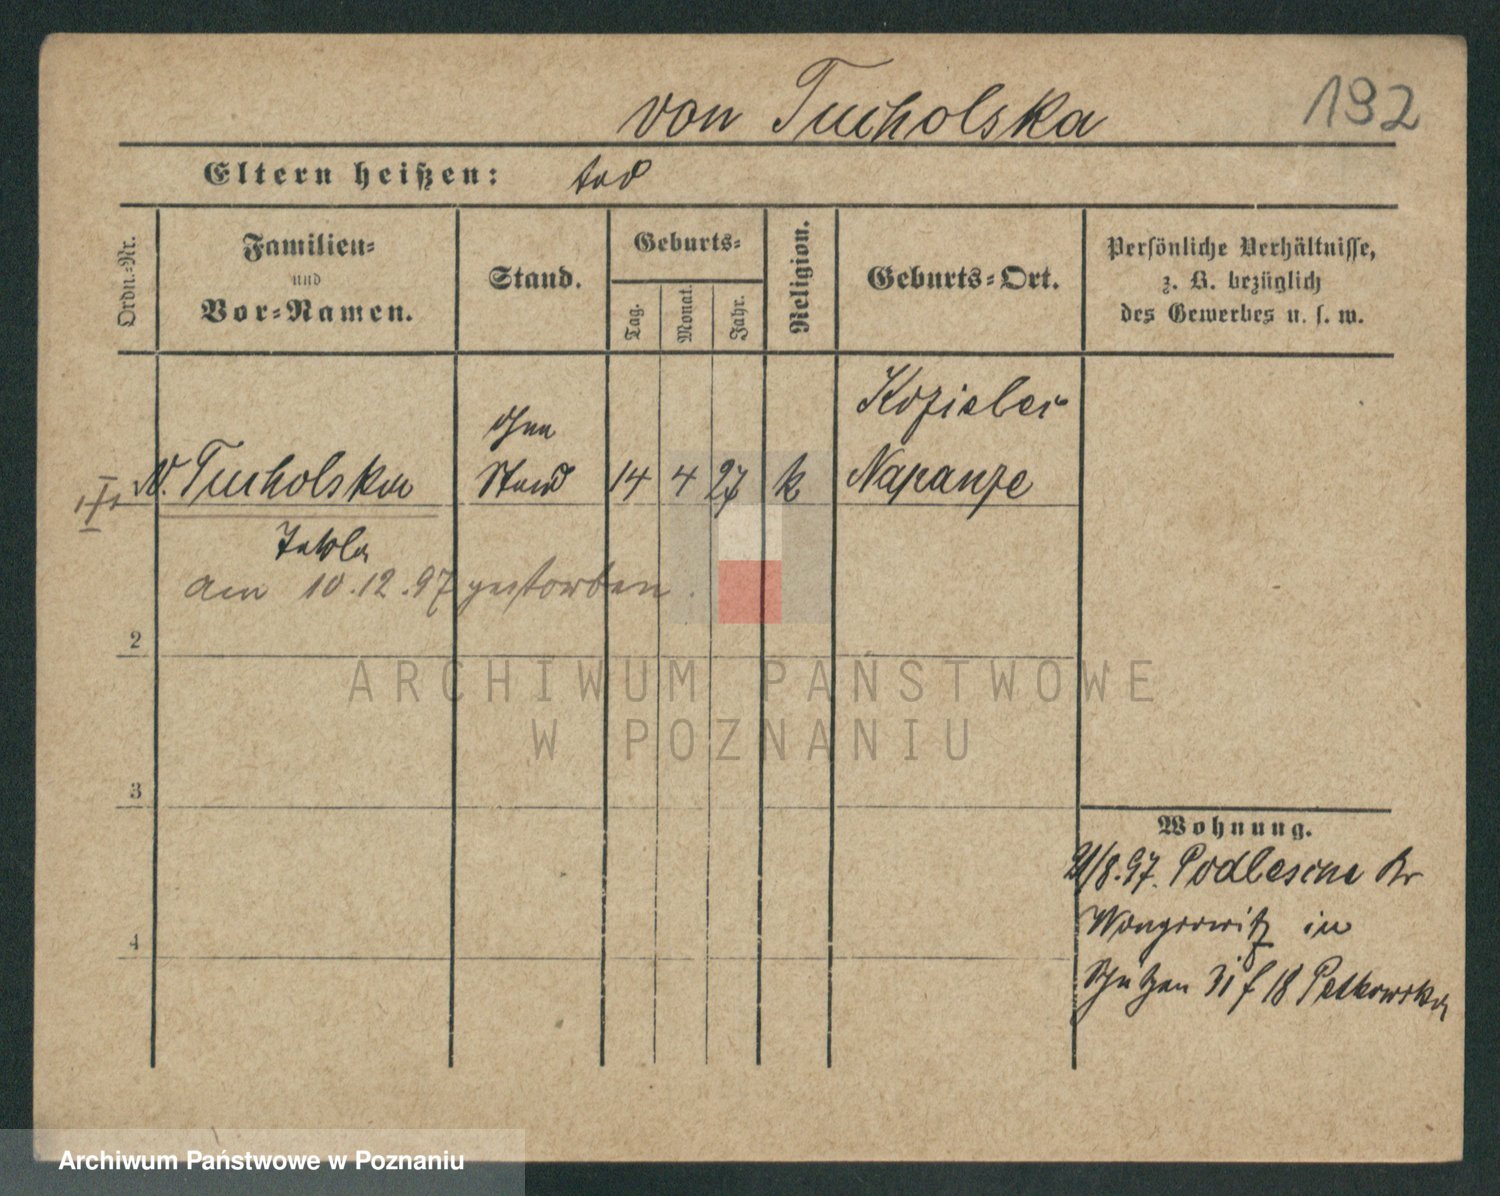 von Tucholska 192
Eltern heißen: tod
Ordn.-Nr.
Familien-
und
Vor-Namen.
Stand.
Geburts-
Tag.
Monat.
Jahr.
Religion.
Geburts-Ort.
Persönliche Verhältnisse,
z. B. bezüglich
des Gewerbes u. s. w.
v. Tucholska
Tekla
ohne
Stand
14 4 27 k
am 10.12.97 gestorben.
2
3
4
Wohnung.
21/8.97. Podlesche Kr
Wongrowitz in
Schützen 31 f 18 Petkowska
ARCHIWUM PAŃSTWOWE
W POZNANIU
Archiwum Państwowe w Poznaniu